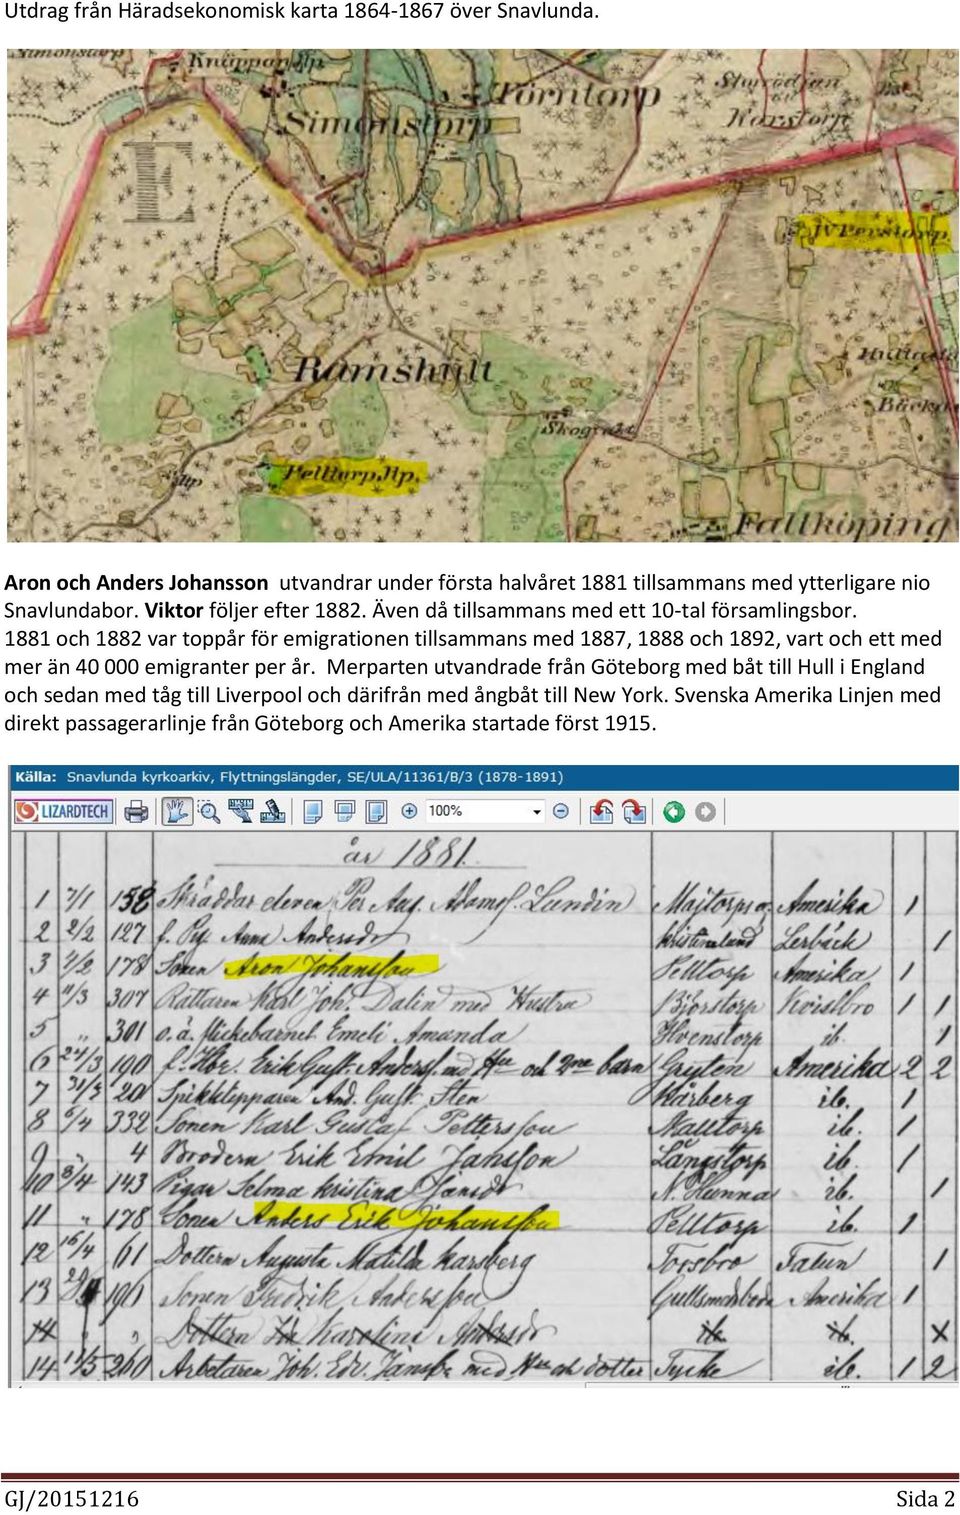 Utdrag från Häradsekonomisk karta 1864-1867 över Snavlunda.
Simonstorp
Knäppan
Törntorp
Simonstorp
Karstorp
E
Perstorp
Ramshült
Skogvakt
Bäcka
Pelltorp
Falltköping
Aron och Anders Johansson utvandrar under första halvåret 1881 tillsammans med ytterligare nio
Snavlundabor. Viktor följer efter 1882. Även då tillsammans med ett 10-tal församlingsbor.
1881 och 1882 var toppår för emigrationen tillsammans med 1887, 1888 och 1892, vart och ett med
mer än 40 000 emigranter per år. Merparten utvandrade från Göteborg med båt till Hull i England
och sedan med tåg till Liverpool och därifrån med ångbåt till New York. Svenska Amerika Linjen med
direkt passagerarlinje från Göteborg och Amerika startade först 1915.
Källa: Snavlunda kyrkoarkiv, Flyttningslängder, SE/ULA/11361/B/3 (1878-1891)
LIZARDTECH 100%
år 1881.
1 7/1 158 Skräddar eleven Per Aug. Lundin Amerika 1
2 2/2 127 Anna Andersdr Lerbäck 1
3 178 Sonen Aron Johansson Pelltorp Amerika 1
4 11/3 307 Rättaren Karl Joh. Dalin med Hustru Björstorp Kvistbro 1 1
5 " 301 o. ä. Flickebarnet Emeli Amanda ib. 1
6 24/3 190 Erik Gust. Anderss. med Hu och 2ne barn Gryten Amerika 2 2
7 31/3 201 And. Gust. Sten Kårberg ib. 1
8 6/4 332 Sonen Karl Gustaf Pettersson ib. 1
9 " 4 Brodern Erik Emil Jansson Långstorp ib. 1
10 8/4 143 Pigan Selma Kristina Jansdr N. Hunna ib. 1
11 " 178 Sonen Anders Erik Johansson Pelltorp ib. 1
12 16/4 61 Dottern Augusta Matilda Karsberg Torsbro Falun 1
13 190 Sonen Fredrik Andersson Amerika 1
14 " " Dottern Karolina Andersdr ib. ib. X
14 13/5 260 Arbetaren Joh. Edv. med Hu och dotter Tycke ib. 1 2
GJ/20151216 Sida 2